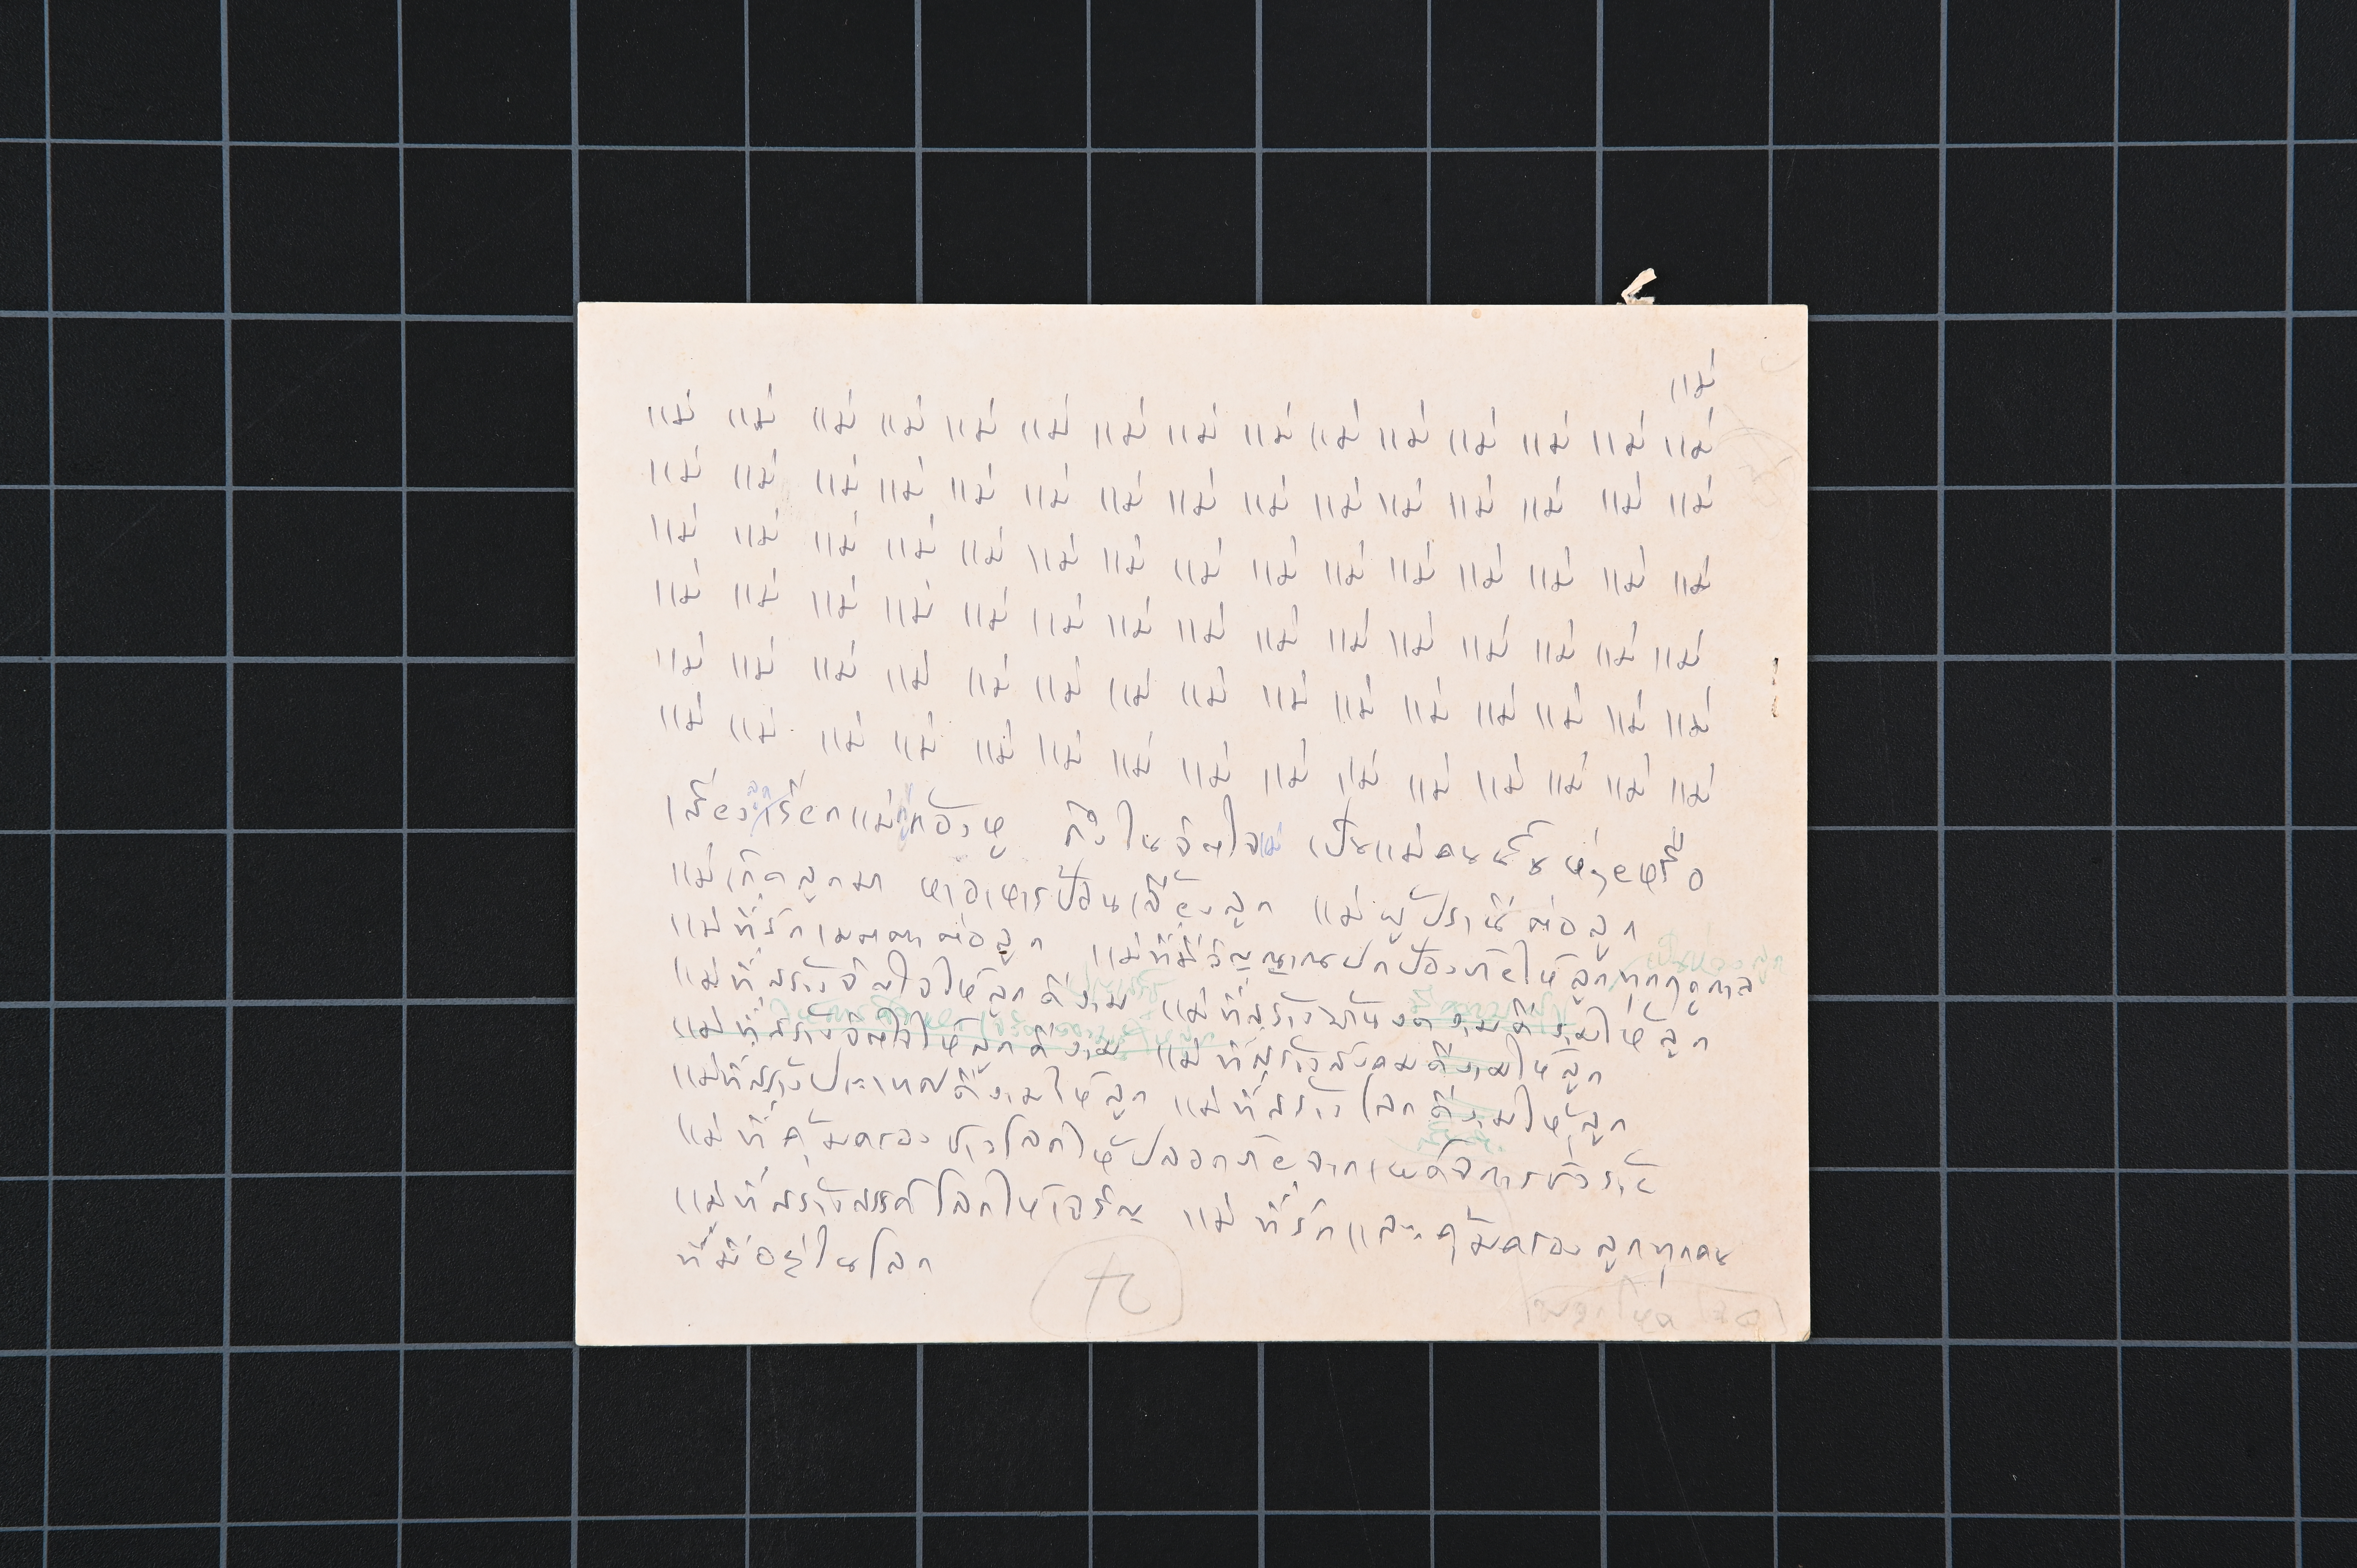 แม่
แม่ แม่ แม่ แม่ แม่ แม่ แม่ แม่ แม่ แม่ แม่ แม่ แม่ แม่ แม่
แม่ แม่ แม่ แม่ แม่ แม่ แม่ แม่ แม่ แม่ แม่ แม่ แม่ แม่ แม่
แม่ แม่ แม่ แม่ แม่ แม่ แม่ แม่ แม่ แม่ แม่ แม่ แม่ แม่ แม่
แม่ แม่ แม่ แม่ แม่ แม่ แม่ แม่ แม่ แม่ แม่ แม่ แม่ แม่ แม่
แม่ แม่ แม่ แม่ แม่ แม่ แม่ แม่ แม่ แม่ แม่ แม่ แม่ แม่ แม่
แม่ แม่ แม่ แม่ แม่ แม่ แม่ แม่ แม่ แม่ แม่ แม่ แม่ แม่ แม่
เสียงเรียกแม่ก้องหู ในจิตใจ เป็นแม่คน
แม่เกิดลูกมา หาอาหารป้อนเลี้ยงลูก แม่ผู้ปรานีต่อลูก
แม่ที่รักเมตตาต่อลูก แม่ที่มีวิญญาณปกป้องภัยให้ลูกทุกฤดูกาล
แม่ที่สร้างจิตใจให้ลูกดีงาม แม่ที่สร้างบ้านงดงามให้ลูก
แม่ที่สร้างจิตใจให้ลูกดีงาม แม่ที่สร้างสังคมดีงามให้ลูก
แม่ที่สร้างประเทศดีงามให้ลูก แม่ที่สร้างโลกดีงามให้ลูก
แม่ที่คุ้มครองชาวโลกให้ปลอดภัยจากเผด็จการชั่วร้าย
แม่ที่สร้างสรรค์โลกให้เจริญ แม่ที่รักและคุ้มครองลูกทุกคน
ที่มีอยู่ในโลก